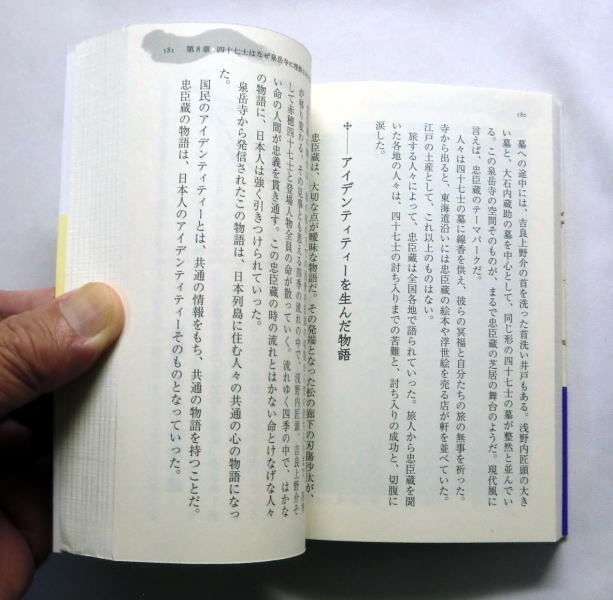 180
墓への途中には、吉良上野介の首を洗った首洗い井戸もある。浅野内匠頭の大き
い墓と、大石内蔵助の墓を中心として、同じ形の四十七士の墓が整然と並んでい
る。この泉岳寺の空間そのものが、まるで忠臣蔵の芝居の舞台のようだ。現代風に
言えば、忠臣蔵のテーマパークだ。
人々は四十七士の墓に線香を供え、彼らの冥福と自分たちの旅の無事を祈った。
寺から出ると、東海道沿いには忠臣蔵の絵本や浮世絵を売る店が軒を並べていた。
江戸の土産として、これ以上のものはない。
旅する人々によって、忠臣蔵は全国各地で語られていった。旅人から忠臣蔵を聞
いた各地の人々は、四十七士の討ち入りまでの苦難と、討ち入りの成功と、切腹に
涙した。
アイデンティティーを生んだ物語
忠臣蔵は、大切な点が曖昧な物語だ。その発端となった松の廊下の刃傷沙太が、
181 第8章 四十七士はなぜ泉岳寺に
が移り変わる。その見事とも思える四季の流れの中で、浅野内匠頭、吉良上野介そ
して赤穂四十七士と登場人物全員の命が散っていく。流れゆく四季の中で、はかな
い命の人間が忠義を貫き通す。この忠臣蔵の時の流れとはかない命とけなげな人々
の物語に、日本人は強く引きつけられていった。
泉岳寺から発信されたこの物語は、日本列島に住む人々の共通の心の物語になっ
た。
国民のアイデンティティーとは、共通の情報をもち、共通の物語を持つことだ。
忠臣蔵の物語は、日本人のアイデンティティーそのものとなっていった。